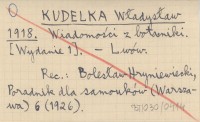 KUDELKA Władysław
1918. Wiadomości z botaniki.
[Wydanie 1]. – Lwów.
Rec.: Bolesław Hryniewiecki,
Poradnik dla samouków (Warsza-
wa) 6 (1926).